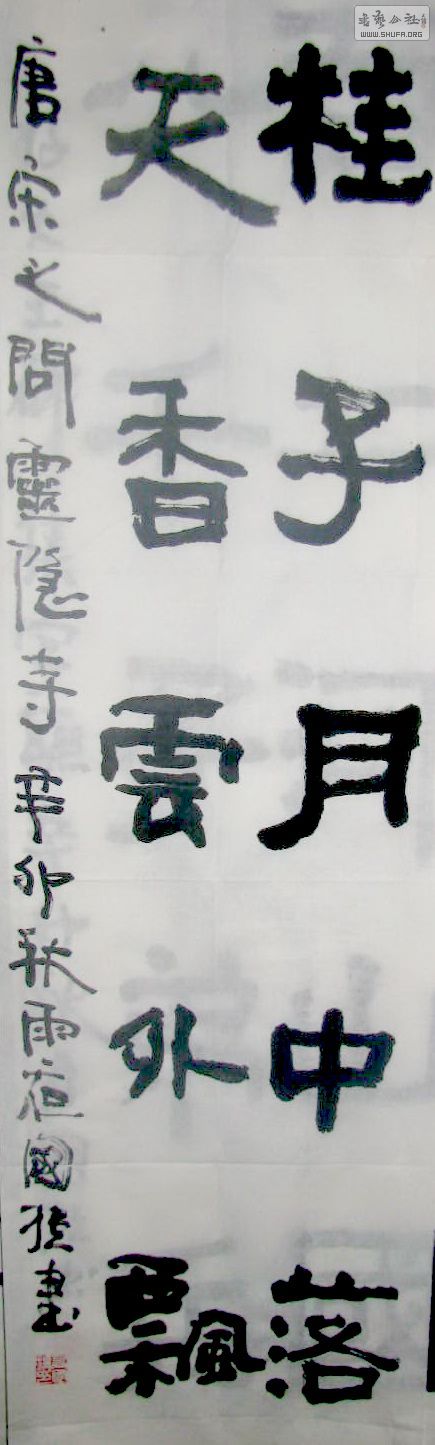 桂子月中落
天香雲外飄
唐宋之問靈隱寺辛卯秋雨夜國強書
WWW.SHUFA.ORG